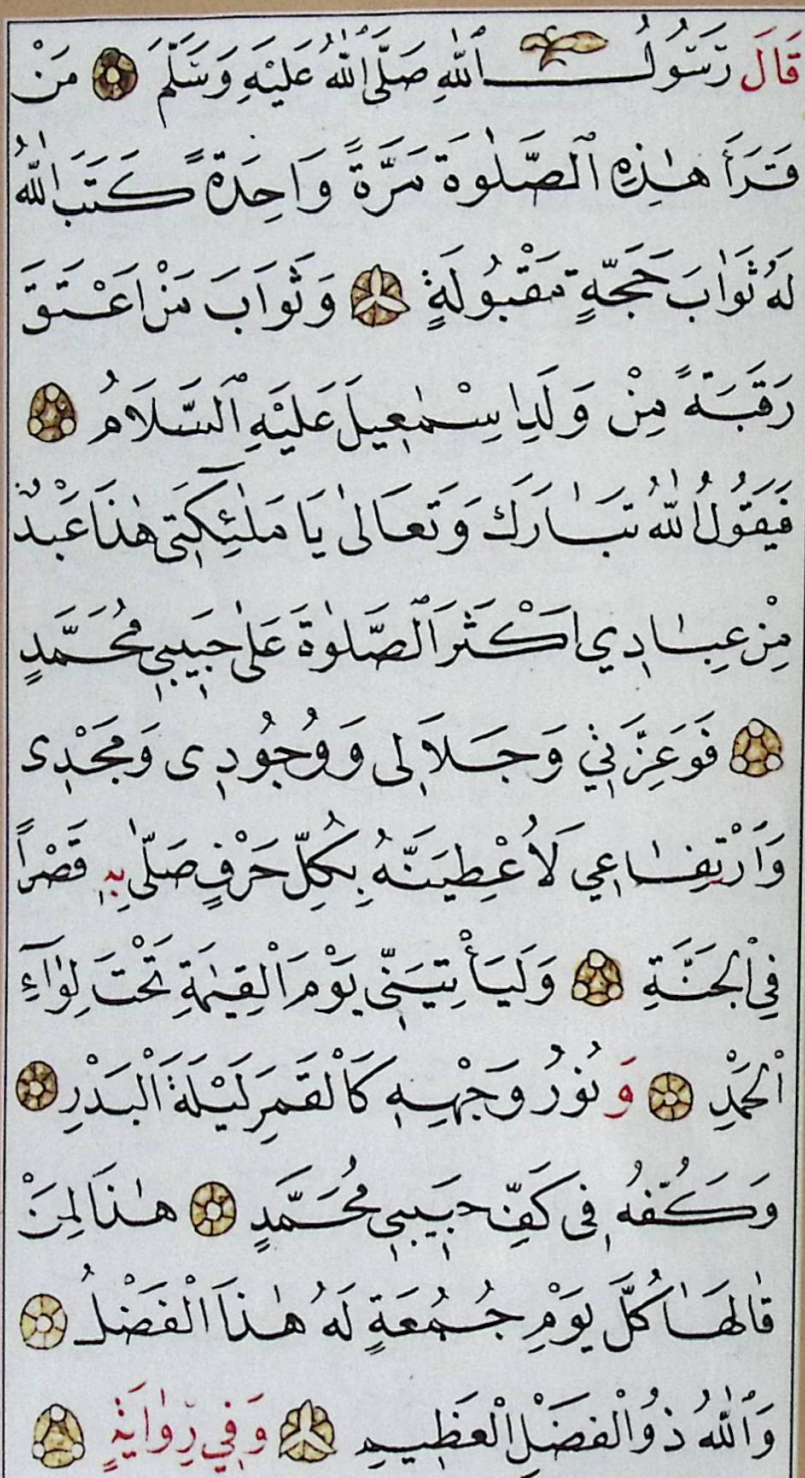 قَالَ رَسُولُ ٱللّٰهِ صَلَّى ٱللّٰهُ عَلَيْهِ وَسَلَّمَ مَنْ
قَرَأَ هٰذِهِ ٱلصَّلٰوةَ مَرَّةً وَاحِدَةً كَتَبَ اللّٰهُ
لَهُ ثَوَابَ حَجَّةٍ مَقْبُولَةٍ وَثَوَابَ مَنْ اَعْتَقَ
رَقَبَةً مِنْ وَلَدِ اِسْمٰعِيلَ عَلَيْهِ ٱلسَّلَامُ
فَيَقُولُ اللّٰهُ تَبَارَكَ وَتَعَالىٰ يَا مَلٰٓئِكَتِى هٰذَا عَبْدٌ
مِنْ عِبَادِي اَكْثَرَ ٱلصَّلٰوةَ عَلىٰ حَبِيبِى مُحَمَّدٍ
فَوَعِزَّتِي وَجَلَالِى وَوُجُودِى وَمَجْدِى
وَٱرْتِفَاعِي لَاُعْطِيَنَّهُ بِكُلِّ حَرْفٍ صَلّٰى بِهِ قَصْرًا
فِي ٱلْجَنَّةِ وَلَيَأْتِيَنِّى يَوْمَ الْقِيٰمَةِ تَحْتَ لِوَآءِ
الْحَمْدِ وَنُورُ وَجْهِهِ كَالْقَمَرِ لَيْلَةَ الْبَدْرِ
وَكَفُّهُ فِى كَفِّ حَبِيبِى مُحَمَّدٍ هٰذَا لِمَنْ
قَالَهَا كُلَّ يَوْمِ جُمُعَةٍ لَهُ هٰذَا الْفَضْلُ
وَٱللّٰهُ ذُو الْفَضْلِ الْعَظِيمِ وَفِي رِوَايَةٍ